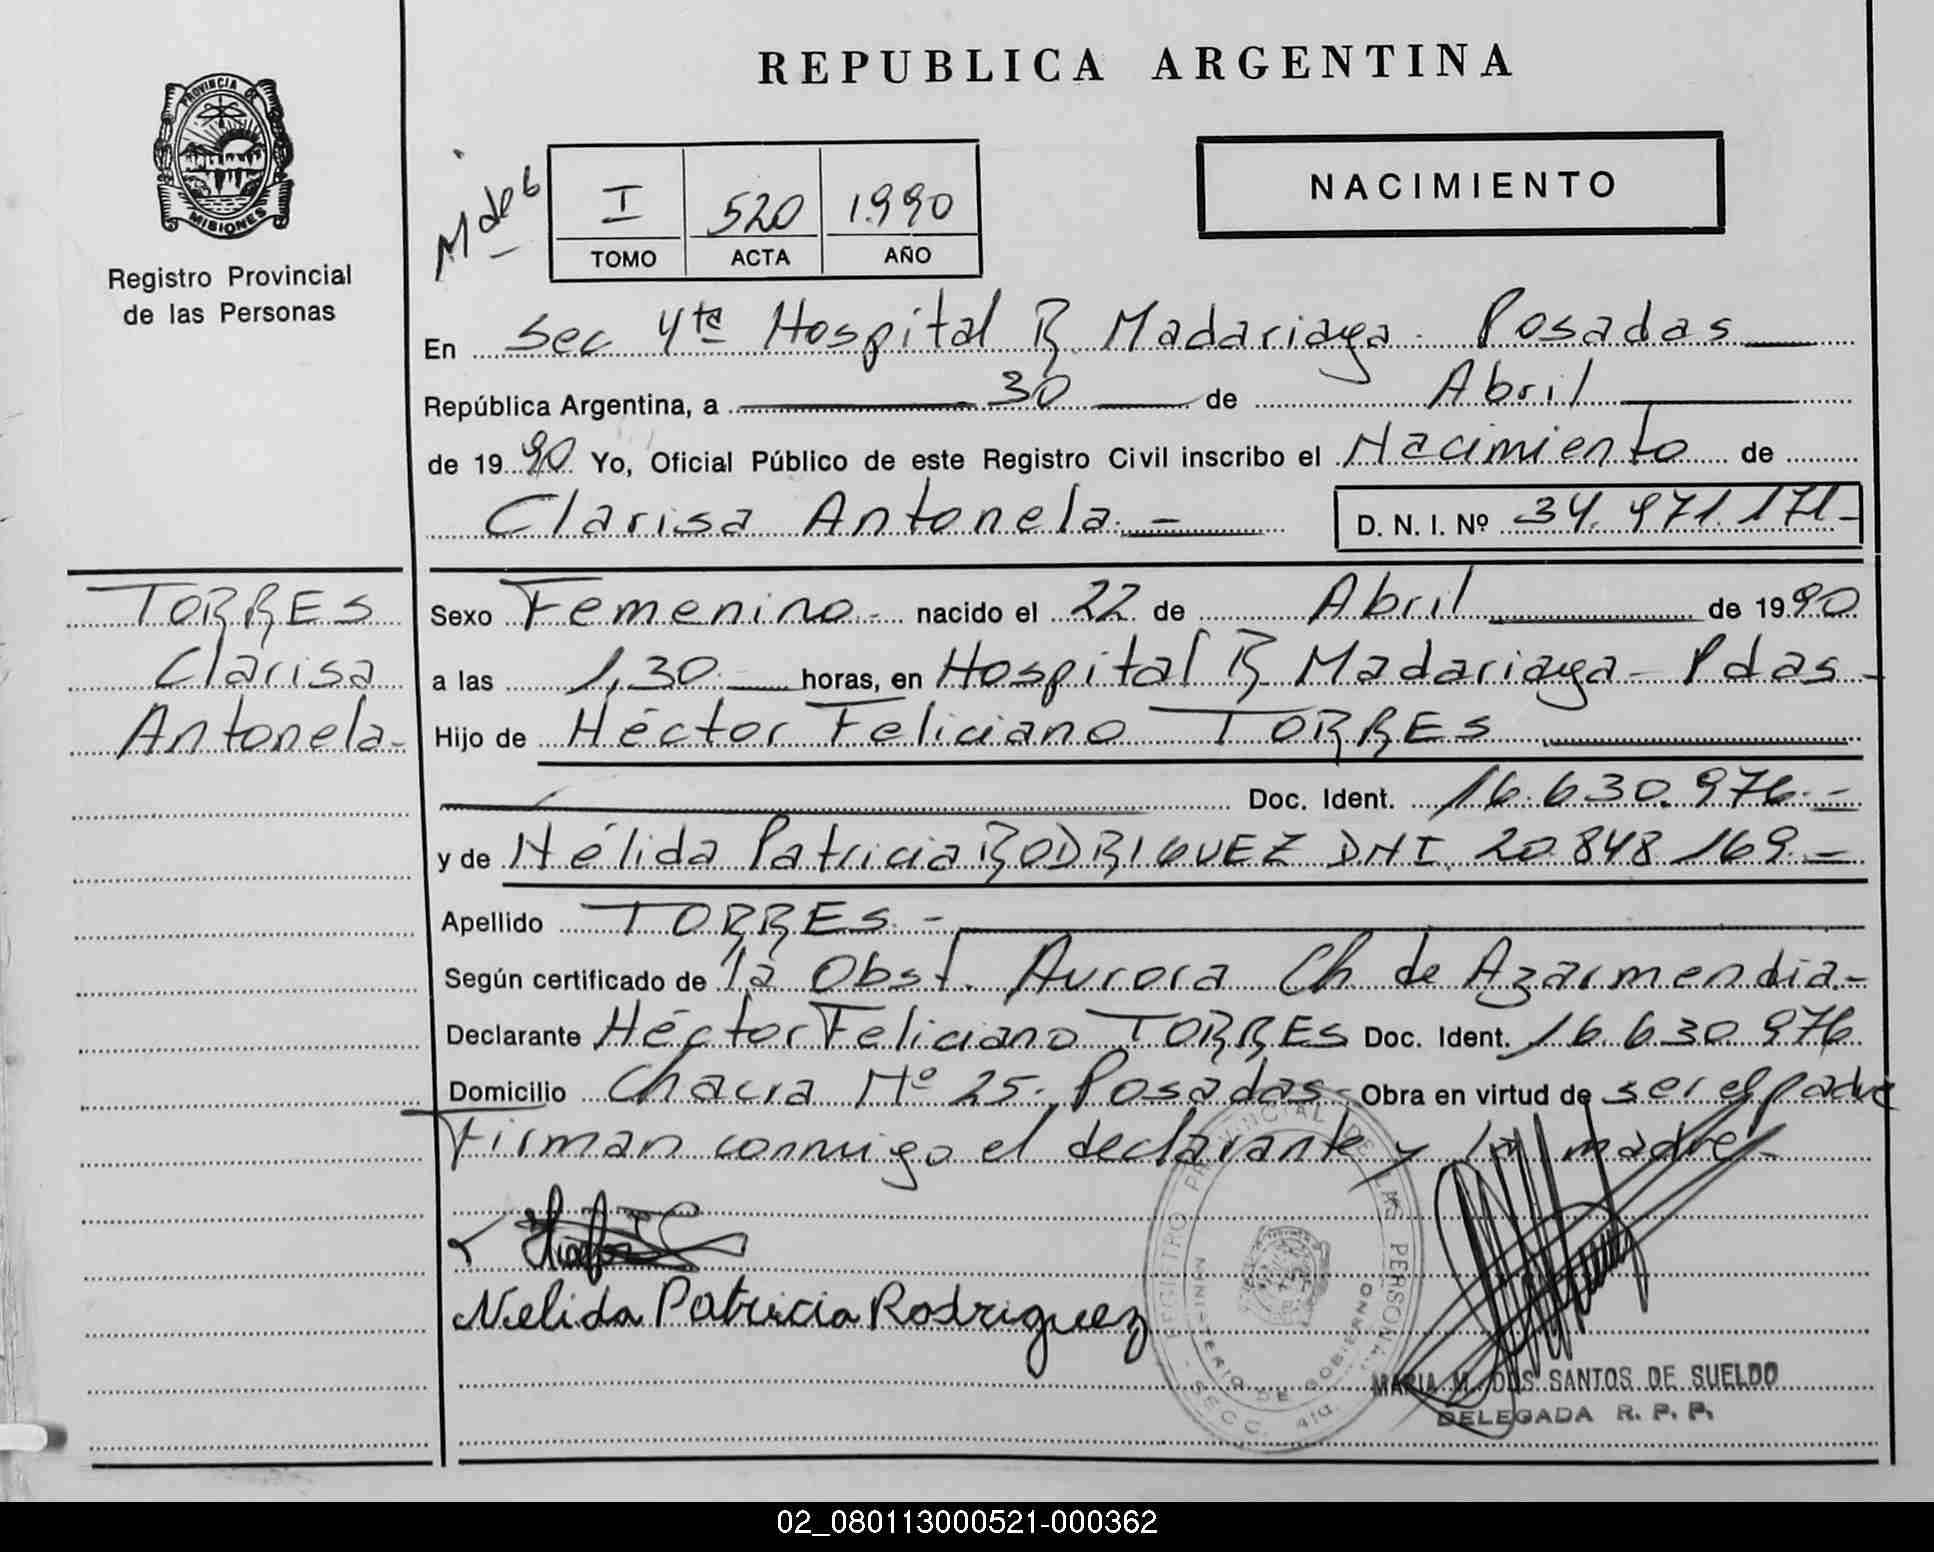 REPUBLICA ARGENTINA
PROVINCIA DE
MISIONES
Registro Provincial
de las Personas
I 520 1.990
TOMO ACTA AÑO
NACIMIENTO
En Sec 4ta Hospital R. Madariaga. Posadas
República Argentina, a 30 de Abril
de 1990 Yo, Oficial Público de este Registro Civil inscribo el Nacimiento de
Clarisa Antonela.- D. N. I. Nº 34.971.171-
TORRES
Clarisa
Antonela-
Sexo Femenino.- nacido el 22 de Abril de 1990
a las 1,30 horas, en Hospital R Madariaga- Pdas-
Hijo de Héctor Feliciano TORRES
Doc. Ident. 16.630.976.-
y de Nélida Patricia RODRIGUEZ DNI. 20.848.169.-
Apellido TORRES.-
Según certificado de la Obst. Aurora Ch de Azarmendia.-
Declarante Héctor Feliciano TORRES Doc. Ident. 16.630.976
Domicilio Chacra Nº 25. Posadas Obra en virtud de ser el padre
Firman conmigo el declarante y la madre-
Nelida Patricia Rodriguez
REGISTRO PROVINCIAL DE LAS PERSONAS
MINISTERIO DE GOBIERNO
SECC. 4ta.
MARIA M. DOS SANTOS DE SUELDO
DELEGADA R. P. P.
02_080113000521-000362